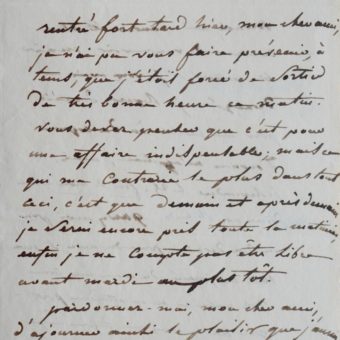 rentré fort tard hier, mon cher ami,
je n'ai pu vous faire prévenir à
tems, que j'étois forcé de sortir
de très bonne heure ce matin.
vous devez penser que c'est pour
une affaire indispensable; mais ce
qui me contrarie le plus dans tout
ceci, c'est que demain et après demain
je serai encore pris toute la matinée,
enfin je ne compte pas être libre
avant mardi au plustôt.
pardonnez-moi, mon cher ami,
d'ajourner ainsi le plaisir que j'aurai